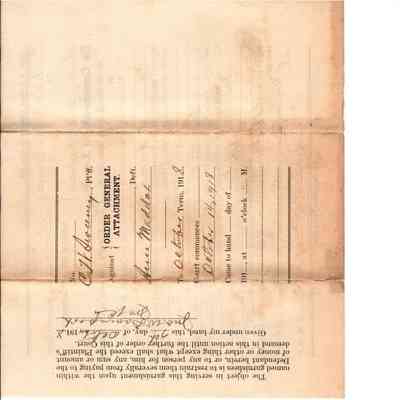 No.
Pl'ff.
Against
ORDER GENERAL
ATTACHMENT.
Deft.
To October Term, 1918
Court commences
October 14, 1918
Came to hand day of
191 at o'clock M.
The object in serving this garnishment upon the within
named garnishees is to restrain them severally from paying to the
Defendant herein, or to any person for him, any sum or amount
of money or other thing except what shall exceed the Plaintiff's
demand in this action until the further order of this Court.
Given under my hand, this day of 1918